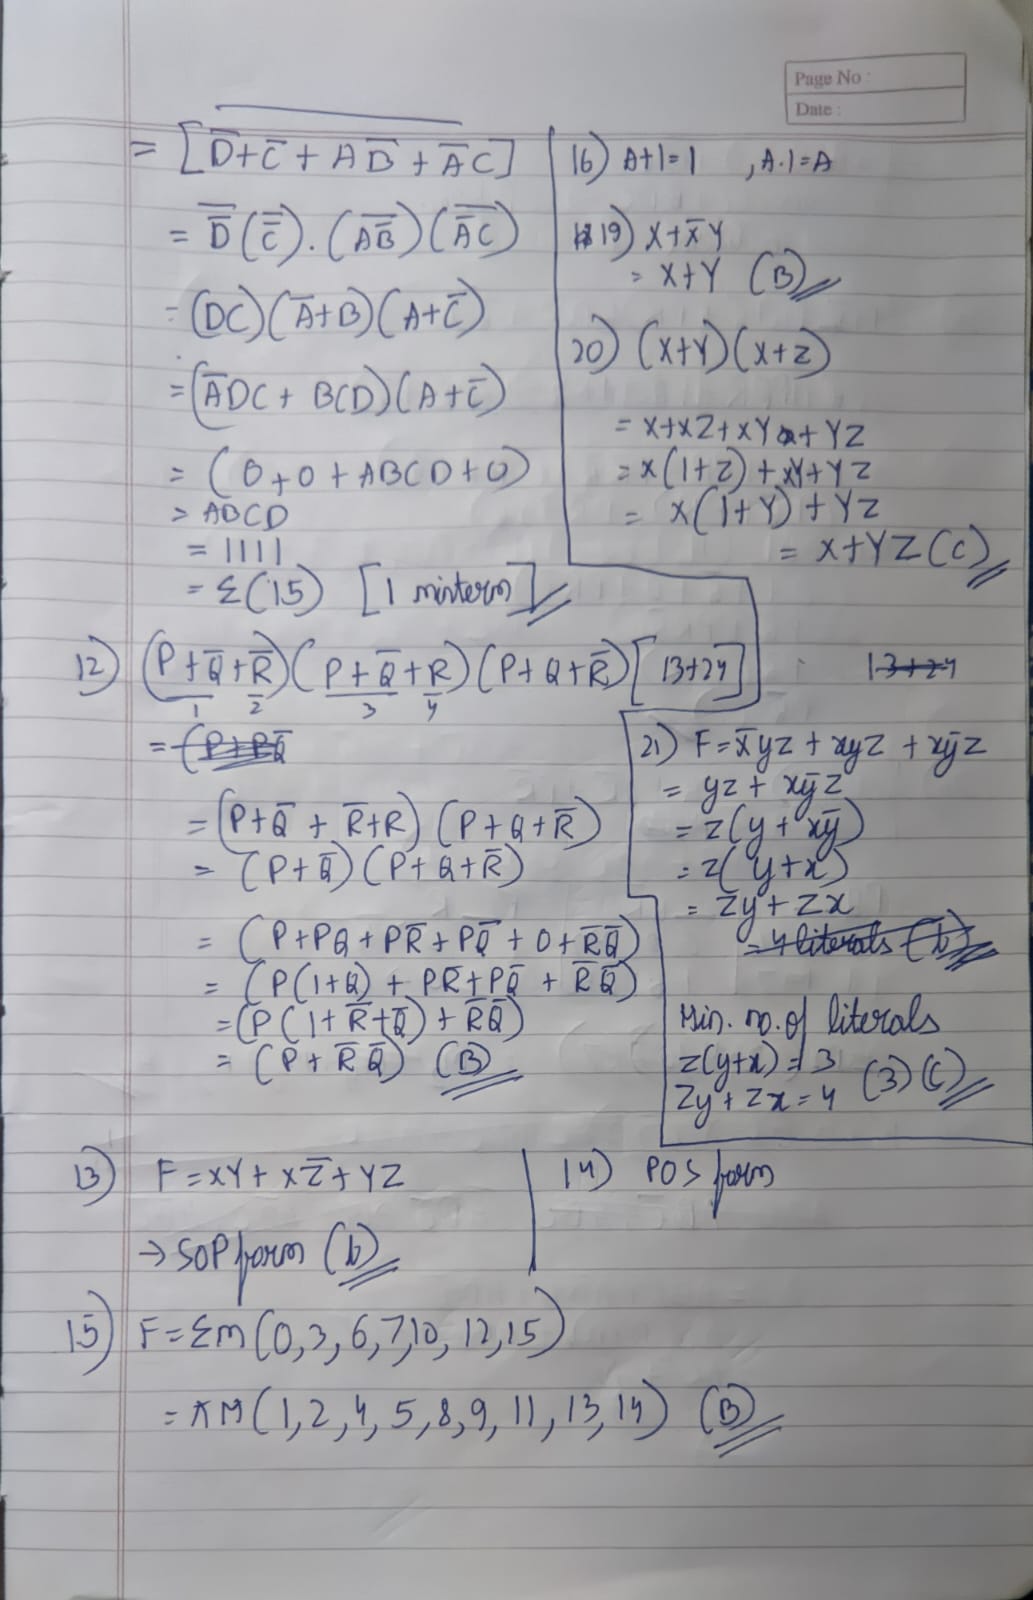 Page No :
Date :
= [D̅+C̅ + AB̅ + A̅C]
= D̿(C̿).(A̅B̅̅)(A̅̅C̅)
= (DC)(A̅+B)(A+C̅)
= (A̅DC + BCD)(A+C̅)
= (0+0+ABCD+0)
= ABCD
= 1111
= Σ(15) [1 minterm]
16) A+1=1 , A.1=A
19) X+X̅Y
= X+Y (B)
20) (X+Y)(X+Z)
= X+XZ+XY+YZ
= X(1+Z)+XY+YZ
= X(1+Y)+YZ
= X+YZ (C)
12) (P+Q̅+R̅)(P+Q̅+R)(P+Q+R̅) [13+24] 13+24
1 2 3 4
= (P+PQ̅
= (P+Q̅ + R̅+R) (P+Q+R̅)
= (P+Q̅)(P+Q+R̅)
= (P+PQ+PR̅+PQ̅+0+R̅Q̅)
= (P(1+Q) + PR̅+PQ̅ + R̅Q̅)
= (P(1+R̅+Q̅)+R̅Q̅)
= (P+R̅Q̅) (B)
21) F=x̅yz + xyz + xy̅z
= yz + xy̅z
= z(y+xy̅)
= z(y+x)
= zy+zx
= 4 literals (b)
Min. no. of literals
z(y+x) = 3
zy+zx = 4 (3) (C)
13) F=XY+XZ̅+YZ
→ SOP form (b)
14) POS form
15) F=Σm(0,3,6,7,10,12,15)
= πM(1,2,4,5,8,9,11,13,14) (B)